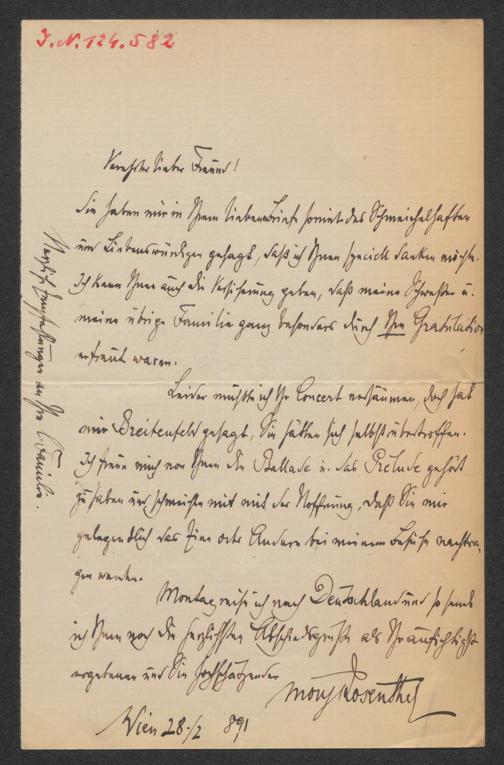 J. N. 124.582
Verehrter lieber Freund!
Sie haben mir in Ihrem lieben Brief soviel des Schmeichelhaften
und Liebenswürdigen gesagt, daß ich Ihnen speciell danken möchte.
Ich kann Ihnen auch die Versicherung geben, daß meine Schwester u.
meine übrige Familie ganz besonders durch Ihre Gratulation
erfreut waren.
Leider mußte ich Ihr Concert versäumen, doch hat
mir Breitenfeld gesagt, Sie hätten sich selbst übertroffen.
Ich freue mich von Ihnen die Ballade u. das Prelude gehört
zu haben und schmeichle mir mit der Hoffnung, daß Sie mir
gelegendlich das Eine oder Andere bei meinem Besuche nachtra-
gen werden.
Montag reise ich nach Deutschland und so sende
ich Ihnen noch die herzlichsten Abschiedsgrüße als Ihr aufrichtigst
ergebener und Sie hochschätzender
Moriz Rosenthal
Wien 28./2 891
Herzlichste Empfehlungen an Ihre l. Familie.